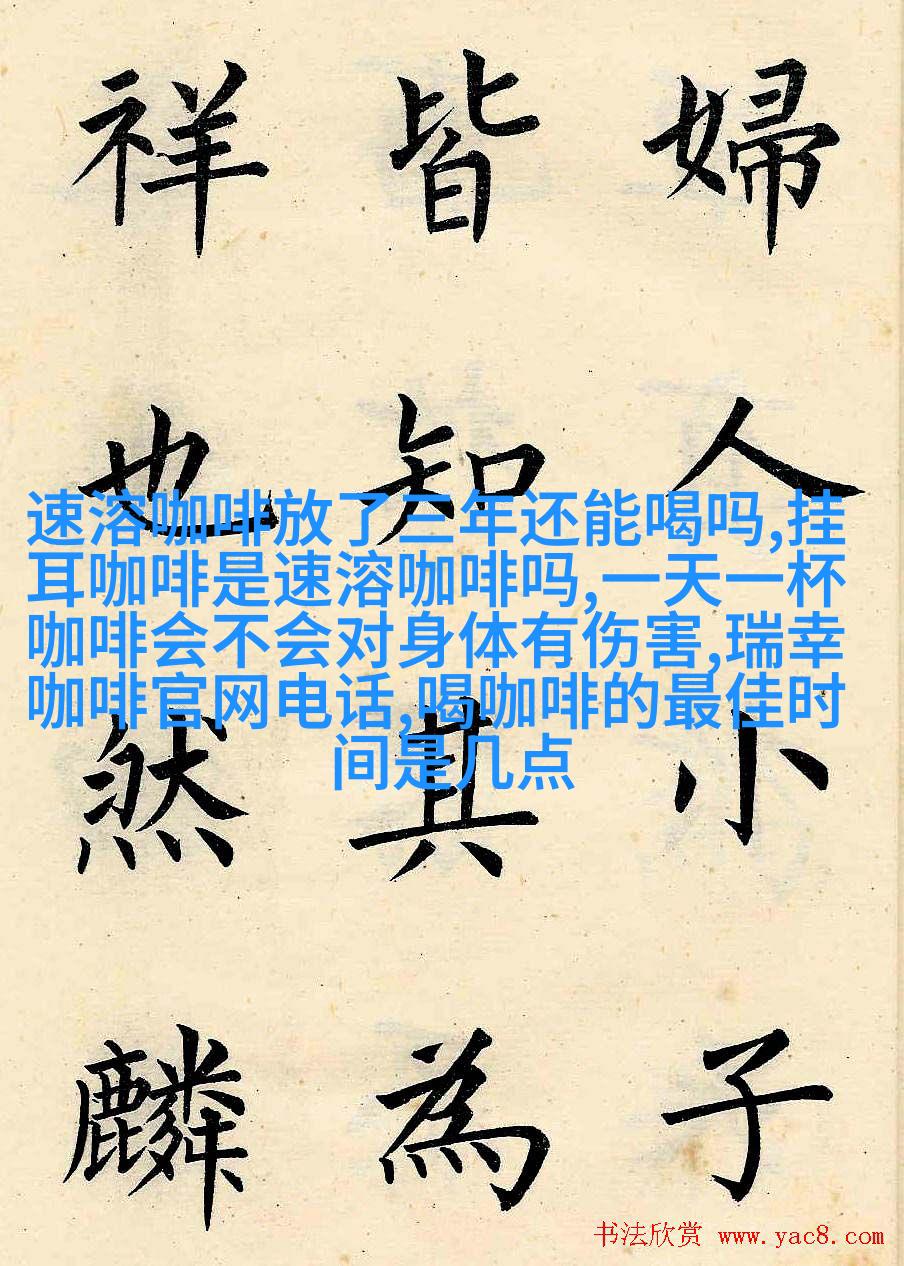 婦人小子
皆知其為
祥也然麟
速溶咖啡放了三年还能喝吗,挂
耳咖啡是速溶咖啡吗,一天一杯
咖啡会不会对身体有伤害,瑞幸
咖啡官网电话,喝咖啡的最佳时
间是几点
书法欣赏 www.yac8.com